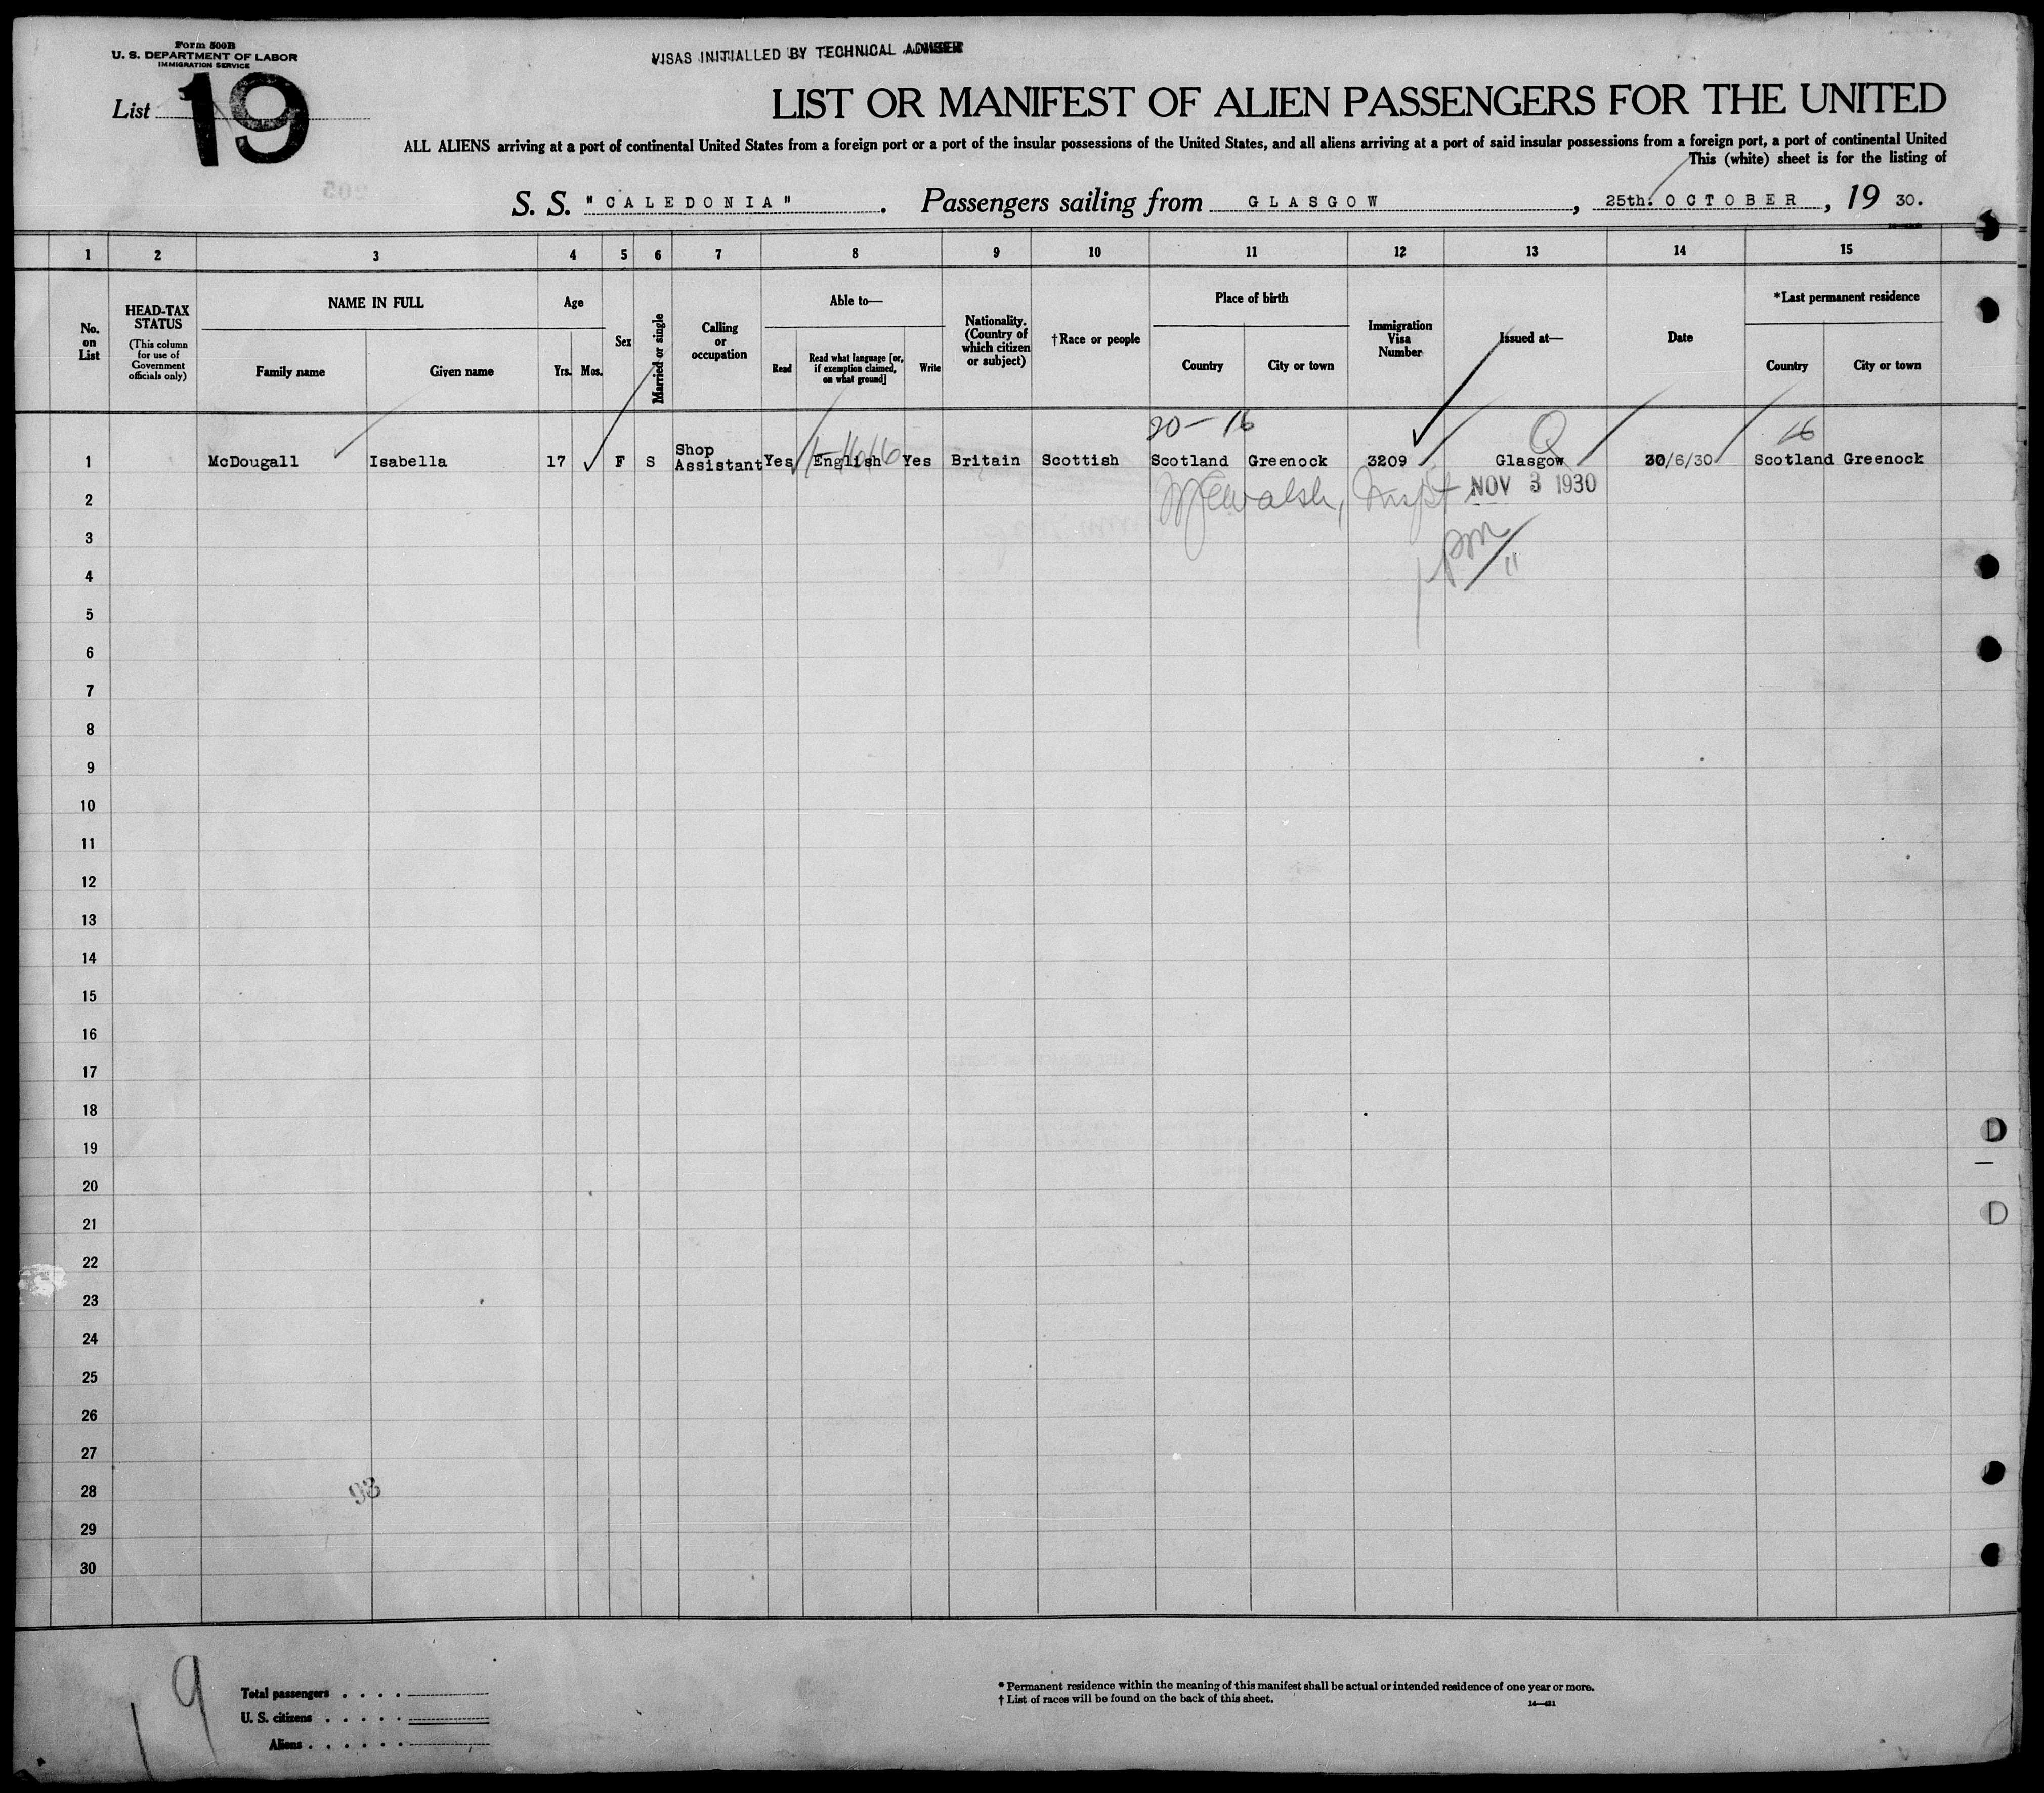 Form 500B
U. S. DEPARTMENT OF LABOR
IMMIGRATION SERVICE
VISAS INITIALLED BY TECHNICAL ADVISER
List 19
LIST OR MANIFEST OF ALIEN PASSENGERS FOR THE UNITED
ALL ALIENS arriving at a port of continental United States from a foreign port or a port of the insular possessions of the United States, and all aliens arriving at a port of said insular possessions from a foreign port, a port of continental United
This (white) sheet is for the listing of
S. S. "CALEDONIA". Passengers sailing from GLASGOW, 25th. OCTOBER, 19 30.
1 2 3 4 5 6 7 8 9 10 11 12 13 14 15
No. on List
HEAD-TAX STATUS
(This column for use of Government officials only)
NAME IN FULL
Family name Given name
Age
Yrs. Mos.
Sex
Married or single
Calling or occupation
Able to—
Read
Read what language [or, if exemption claimed, on what ground]
Write
Nationality. (Country of which citizen or subject)
†Race or people
Place of birth
Country City or town
Immigration Visa Number
Issued at—
Date
*Last permanent residence
Country City or town
20 - 16 Q 16
1 McDougall Isabella 17 F S Shop Assistant Yes English Yes Britain Scottish Scotland Greenock 3209 Glasgow 30/6/30 Scotland Greenock
2 NOV 3 1930
3
4
5
6
7
8
9
10
11
12
13
14
15
16
17
18
19
20
21
22
23
24
25
26
27
28 93
29
30
19
Total passengers
U. S. citizens
Aliens
* Permanent residence within the meaning of this manifest shall be actual or intended residence of one year or more.
† List of races will be found on the back of this sheet.